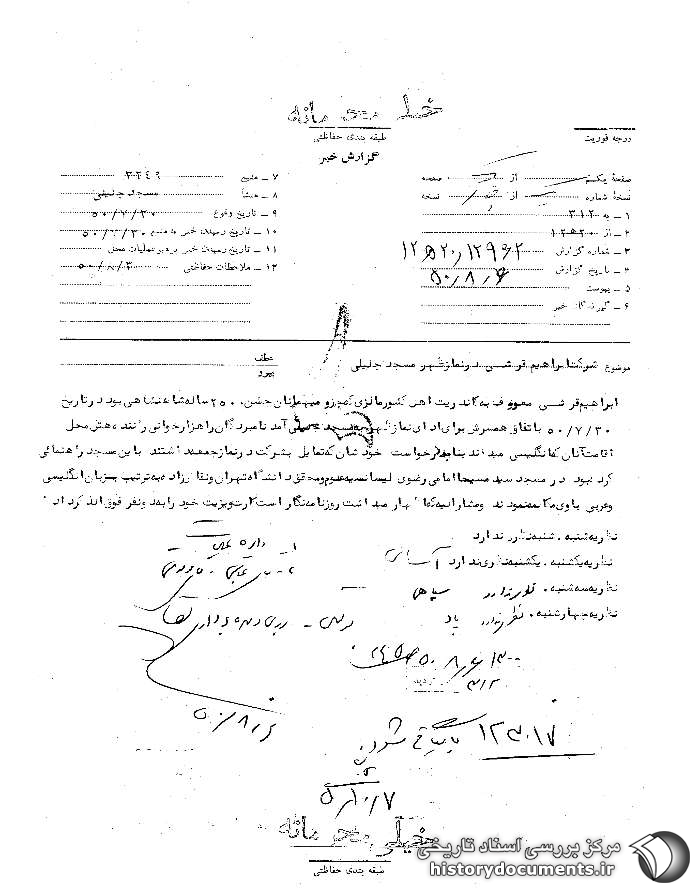 خیلی محرمانه
طبقه بندی حفاظتی
درجه فوریت
گزارش خبر
صفحه یکم از صفحه
نسخه شماره از نسخه
۱ ـ به ۳۱۲
۲ ـ از ۱۲۵۲۰
۳ ـ شماره گزارش
۴ ـ تاریخ گزارش ۵۰/۸/۶
۵ ـ پیوست
۶ ـ گیرندگان خبر
۷ ـ منبع ۳۳۴۹
۸ ـ منشأ مسجد جلیلی
۹ ـ تاریخ وقوع ۵۰/۷/۳۰
۱۰ ـ تاریخ رسیدن خبر به منبع ۵۰/۷/۳۰
۱۱ ـ تاریخ رسیدن خبر برهبر عملیات محل
۱۲ ـ ملاحظات حفاظتی ۵۰/۸/۳
موضوع شرکت ابراهیم قرشی در نماز ظهر مسجد جلیلی
عطف
پیرو
ابراهیم قرشی معروف به کاندریت اهل کشور مالزی که جزو میهمانان جشن ۲۵۰۰ ساله شاهنشاهی بود در تاریخ
۵۰/۷/۳۰ باتفاق همسرش برای ادای نماز ظهر به مسجد جلیلی آمد نامبردگان را هزارخوانی راننده هتل محل
اقامت آنان که انگلیسی میداند بنابدرخواست خودشان که تمایل بشرکت در نماز جمعه داشتند باین مسجد راهنمائی
کرد بود در مسجد سید مسیحا امامی رضوی لیسانسیه علوم و محقق دانشگاه تهران و نقار زاده به ترتیب بزبان انگلیسی
وعربی باوی مکالمه نمودند ومشارالیه که اظهار میداشت روزنامه نگار است کارت ویزیت خود را به دونفر فوق الذکر داد
نظریه شنبه . شنبه نظری ندارد
نظریه یکشنبه . یکشنبه نظری ندارد آسائی
نظریه سه شنبه . نظری ندارد سپاهی
نظریه چهارشنبه . نظری ندارد یاد
۵۰/۸/۶
۳۱۲
۱۲۳۰۱۷ بایگانی شود
خیلی محرمانه
طبقه بندی حفاظتی
مرکز بررسی اسناد تاریخی
historydocuments.ir